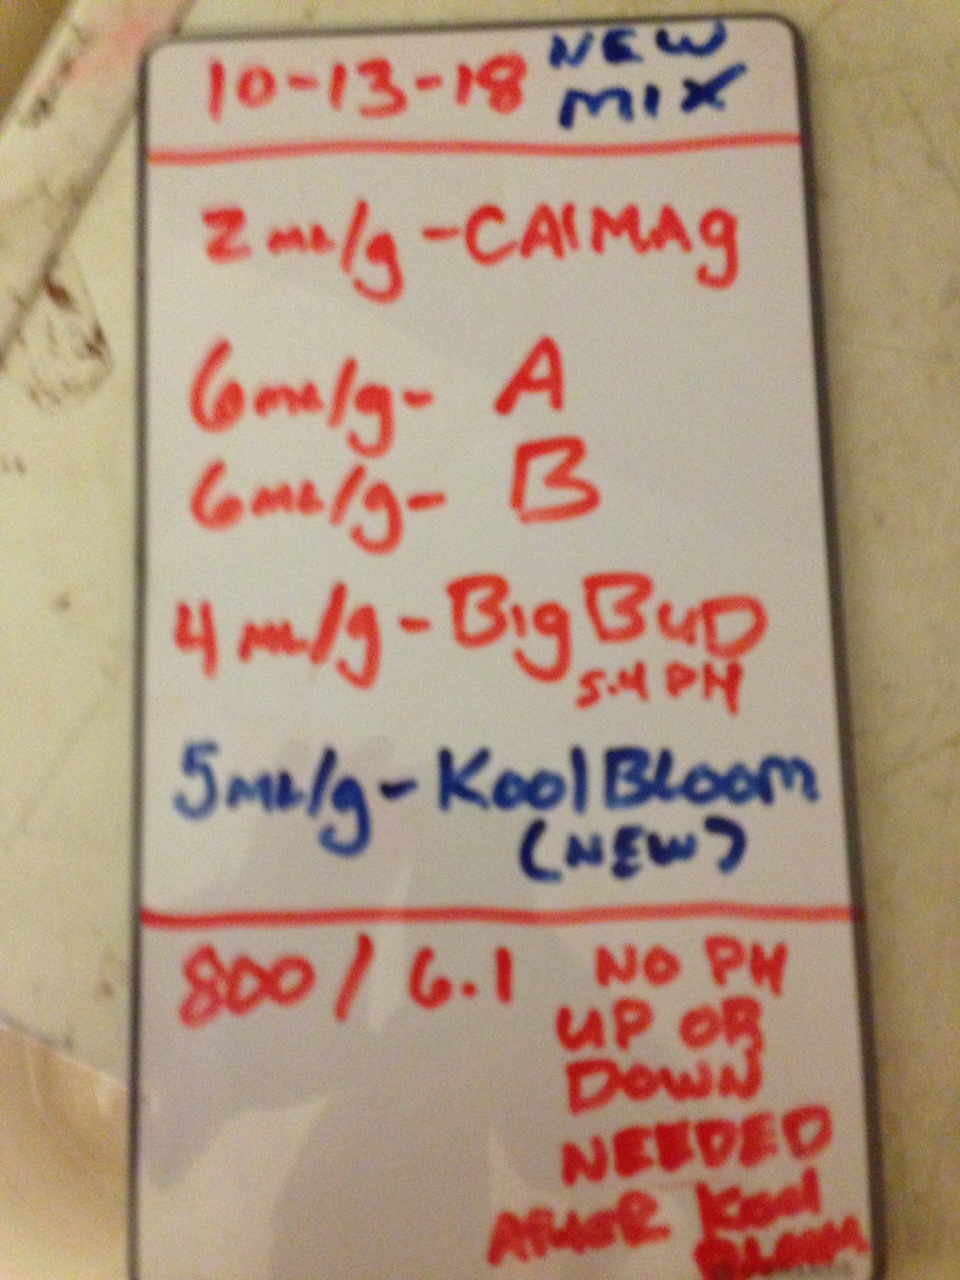 10-13-18 NEW
MIX
2 mL/g - CAlMAg
6mL/g- A
6mL/g- B
4 mL/g - Big BuD
5.4 PH
5mL/g - Kool Bloom
(NEW)
800 / 6.1 NO PH
UP OR
DOWN
NEEDED
AFTER Kool
Bloom